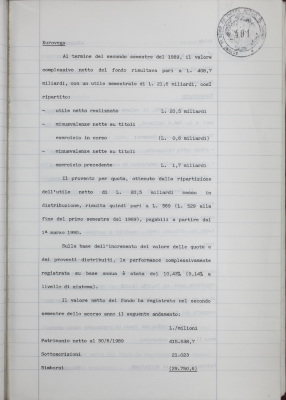 Eurovega
Al termine del secondo semestre del 1989, il valore
complessivo netto del fondo risultava pari a L. 408,7
miliardi, con un utile semestrale di L. 21,6 miliardi, così
ripartito:
- utile netto realizzato L. 20,5 miliardi
- minusvalenze nette su titoli
esercizio in corso (L. 0,6 miliardi)
- minusvalenze nette su titoli
esercizio precedente L. 1,7 miliardi
Il provento per quota, ottenuto dalla ripartizione
dell'utile netto di L. 20,5 miliardi messo in
distribuzione, risulta quindi pari a L. 565 (L. 529 alla
fine del primo semestre del 1989), pagabili a partire dal
1° marzo 1990.
Sulla base dell'incremento del valore delle quote e
dei proventi distribuiti, la performance complessivamente
registrata su base annua è stata del 10,42% (9,14% a
livello di sistema).
Il valore netto del fondo ha registrato nel secondo
semestre dello scorso anno il seguente andamento:
L./milioni
Patrimonio netto al 30/6/1989 415.698,7
Sottoscrizioni 21.023
Rimborsi (29.750,6)